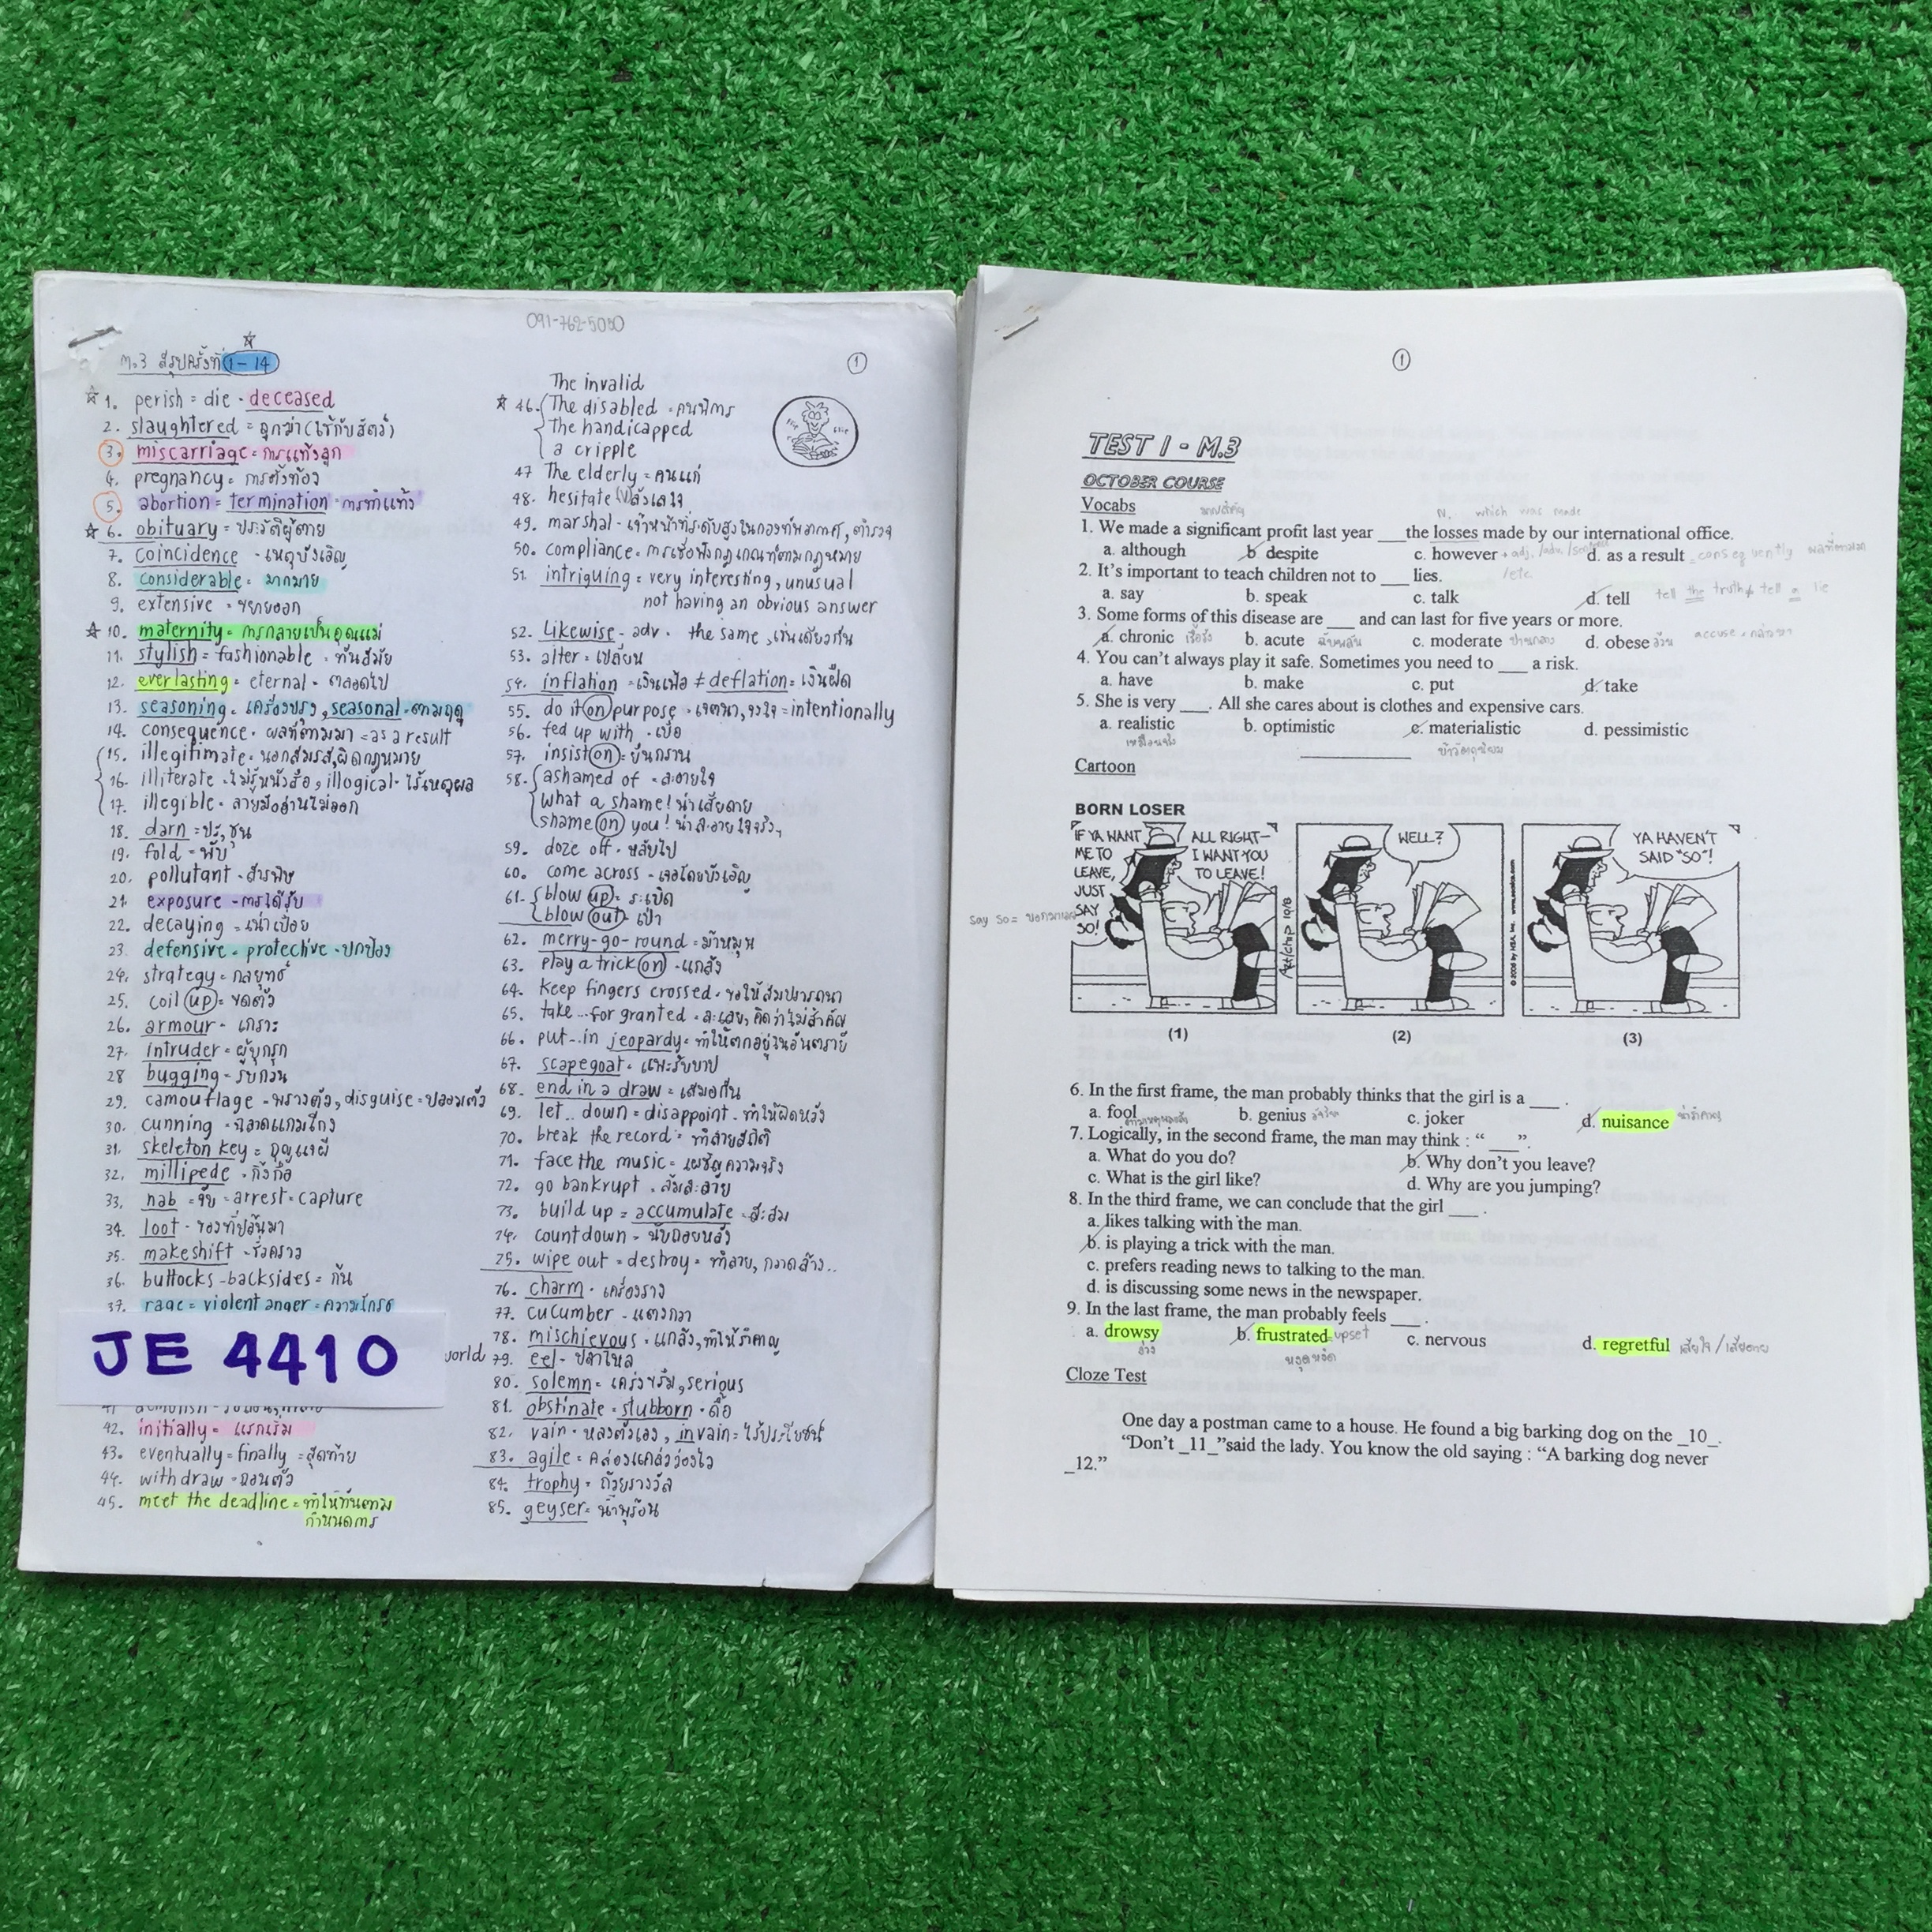 091-762-5050
M.3 สรุปครั้งที่ 1-14
1
1. perish = die - deceased
2. slaughtered = ถูกฆ่า (ใช้กับสัตว์)
3. miscarriage = การแท้งลูก
4. pregnancy = การตั้งท้อง
5. abortion = termination - การทำแท้ง
6. obituary = ประวัติผู้ตาย
7. coincidence - เหตุบังเอิญ
8. considerable = มากมาย
9. extensive = ขยายออก
10. maternity = การกลายเป็นคุณแม่
11. stylish = fashionable - ทันสมัย
12. everlasting = eternal - ตลอดไป
13. seasoning = เครื่องปรุง, seasonal - ตามฤดู
14. consequence - ผลที่ตามมา = as a result
15. illegitimate - นอกสมรส, ผิดกฎหมาย
16. illiterate - ไม่รู้หนังสือ, illogical - ไร้เหตุผล
17. illegible - ลายมืออ่านไม่ออก
18. darn = ปะ, ชุน
19. fold = พับ
20. pollutant - สารพิษ
21. exposure - การได้รับ
22. decaying = เน่าเปื่อย
23. defensive = protective - ปกป้อง
24. strategy = กลยุทธ์
25. coil up = ขดตัว
26. armour - เกราะ
27. intruder = ผู้บุกรุก
28 bugging - รบกวน
29. camouflage - พรางตัว, disguise = ปลอมตัว
30. cunning - ฉลาดแกมโกง
31. skeleton key = กุญแจผี
32. millipede - กิ้งกือ
33. nab = จับ = arrest = capture
34. loot - ของที่ปล้นมา
35. makeshift - ชั่วคราว
36. buttocks - backsides = ก้น
37. rage = violent anger = ความโกรธ
JE 4410
world
42. initially = แรกเริ่ม
43. eventually = finally = สุดท้าย
44. withdraw - ถอนตัว
45. meet the deadline = ทำให้ทันตาม
กำหนดการ
The invalid
46. The disabled = คนพิการ
The handicapped
a cripple
47 The elderly = คนแก่
48. hesitate (v) ลังเลใจ
49. marshal - เจ้าหน้าที่ระดับสูงในกองทัพอากาศ, ตำรวจ
50. compliance = การเชื่อฟังกฎเกณฑ์ตามกฎหมาย
51. intriguing = very interesting, unusual
not having an obvious answer
52. Likewise - adv. the same, เช่นเดียวกัน
53. alter = เปลี่ยน
54. inflation = เงินเฟ้อ ≠ deflation = เงินฝืด
55. do it on purpose - เจตนา, จงใจ = intentionally
56. fed up with - เบื่อ
57. insist on = ยืนกราน
58. ashamed of - ละอายใจ
what a shame! น่าเสียดาย
shame on you! น่าละอายใจจริงๆ
59. doze off - หลับไป
60. come across - เจอโดยบังเอิญ
61. blow up = ระเบิด
blow out - เป่า
62. merry-go-round = ม้าหมุน
63. play a trick on - แกล้ง
64. keep fingers crossed - ขอให้สมปรารถนา
65. take...for granted - ละเลย, คิดว่าไม่สำคัญ
66. put...in jeopardy = ทำให้ตกอยู่ในอันตราย
67. scapegoat - แพะรับบาป
68. end in a draw = เสมอกัน
69. let..down = disappoint - ทำให้ผิดหวัง
70. break the record = ทำลายสถิติ
71. face the music = เผชิญความจริง
72. go bankrupt - ล้มละลาย
73. build up = accumulate - สะสม
74. countdown - นับถอยหลัง
75. wipe out = destroy = ทำลาย, กวาดล้าง..
76. charm - เครื่องราง
77. cucumber - แตงกวา
78. mischievous - แกล้ง, ทำให้รำคาญ
79. eel - ปลาไหล
80. solemn = เคร่งขรึม, serious
81. obstinate = stubborn - ดื้อ
82. vain - หลงตัวเอง, in vain = ไร้ประโยชน์
83. agile = คล่องแคล่วว่องไว
84. trophy = ถ้วยรางวัล
85. geyser = น้ำพุร้อน
1
TEST 1 - M.3
OCTOBER COURSE
Vocabs
N. which was made
1. We made a significant profit last year ___the losses made by our international office.
a. although b despite c. however d. as a result = consequently ผลที่ตามมา
2. It's important to teach children not to ___ lies.
a. say b. speak c. talk d. tell tell the truth, tell a lie
3. Some forms of this disease are ___ and can last for five years or more.
a. chronic เรื้อรัง b. acute ฉับพลัน c. moderate ปานกลาง d. obese อ้วน
4. You can't always play it safe. Sometimes you need to ___ a risk.
a. have b. make c. put d. take
5. She is very ___. All she cares about is clothes and expensive cars.
a. realistic b. optimistic c. materialistic d. pessimistic
Cartoon
BORN LOSER
IF YA WANT ME TO LEAVE, JUST SAY SO!
ALL RIGHT- I WANT YOU TO LEAVE!
WELL?
YA HAVEN'T SAID "SO"!
(1) (2) (3)
6. In the first frame, the man probably thinks that the girl is a ___ .
a. fool b. genius c. joker d. nuisance น่ารำคาญ
7. Logically, in the second frame, the man may think : “ ___”.
a. What do you do? b. Why don't you leave?
c. What is the girl like? d. Why are you jumping?
8. In the third frame, we can conclude that the girl ___ .
a. likes talking with the man.
b. is playing a trick with the man.
c. prefers reading news to talking to the man.
d. is discussing some news in the newspaper.
9. In the last frame, the man probably feels ___ .
a. drowsy b. frustrated = upset c. nervous d. regretful เสียใจ / เสียดาย
ง่วง หงุดหงิด
Cloze Test
One day a postman came to a house. He found a big barking dog on the _10_.
“Don't _11_”said the lady. You know the old saying : “A barking dog never
_12.”